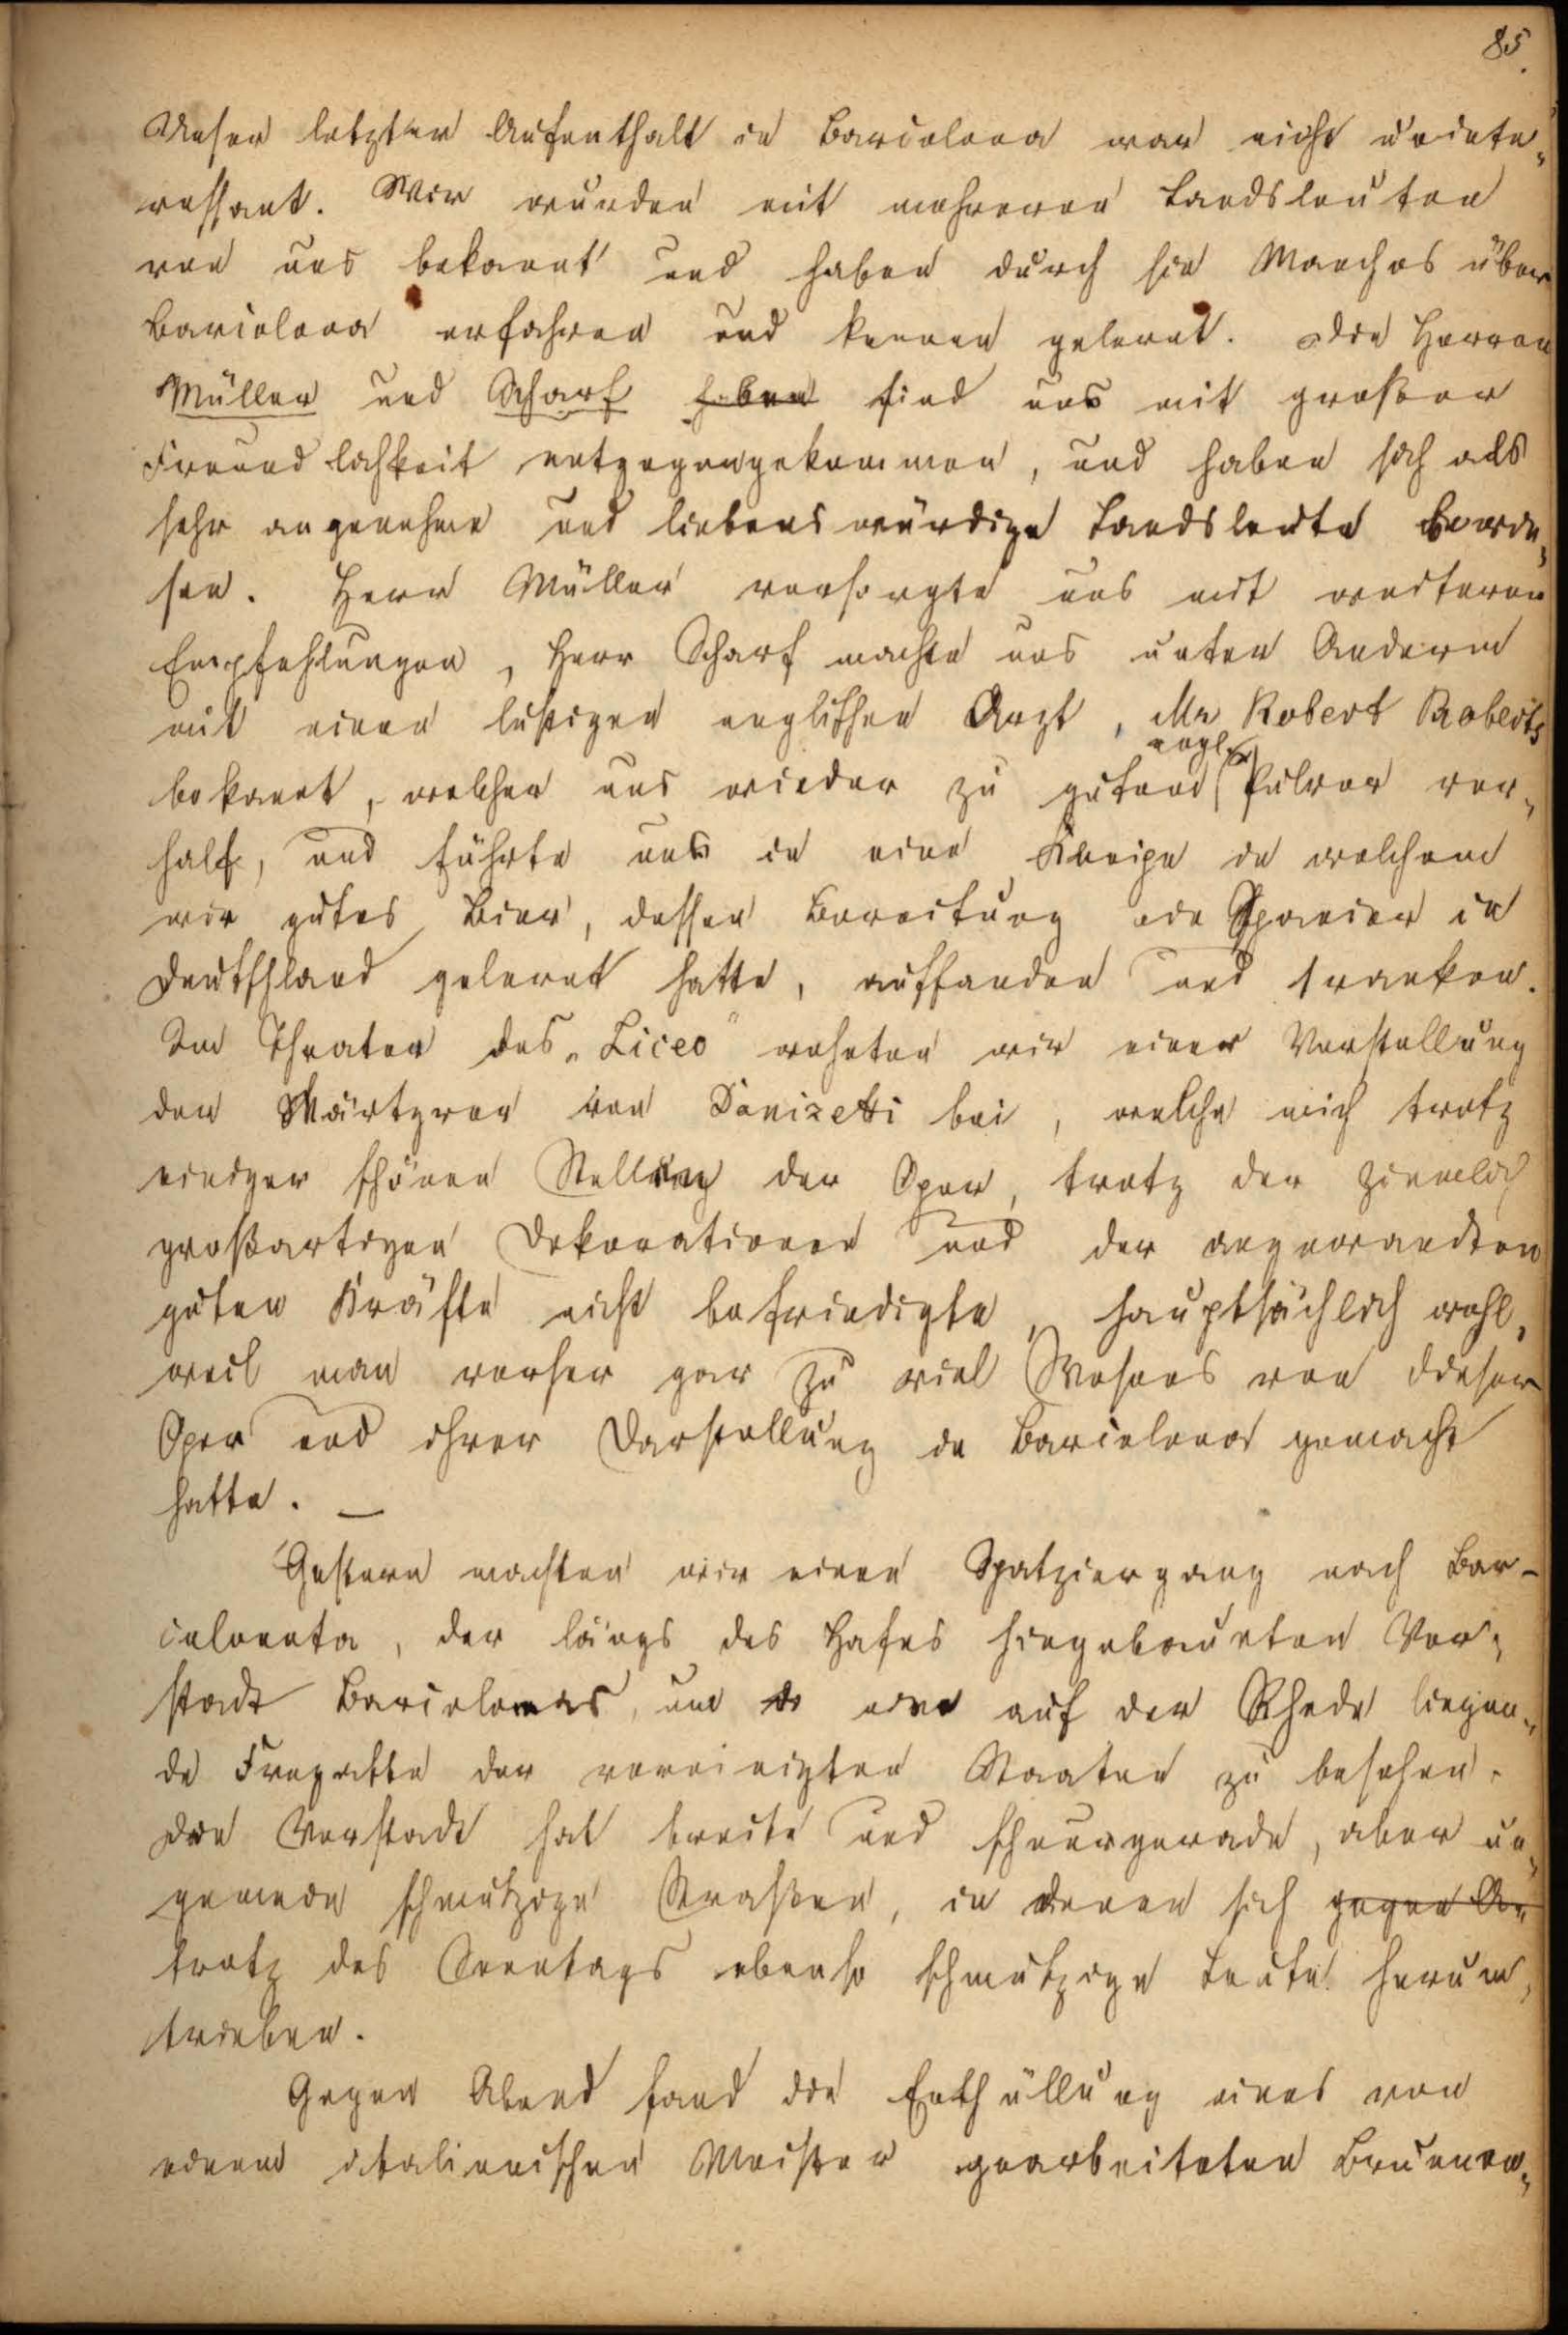 85.
Unser letzter Aufenthalt in Barcelona war nicht uninte„
ressant. Wir wurden mit mehreren Landsleuten
von uns bekannt und haben durch sie Manches über
Barcelona erfahren und kennen gelernt. Die Herren
Müller und Scharf haben sind uns mit großer
Freundlichkeit entgegengekommen, und haben sich als
sehr angenehme und liebenswürdige Landsleute bewie„
sen. Herr Müller versorgte uns mit weiteren
Empfehlungen, Herr Scharf machte uns unter Anderm
mit einem lustigen englischen Arzt, Mr Robert Roberts
bekannt, welcher uns wieder zu gutem engl. Pulver ver„
half, und führte uns in eine Kneipe in welchem
wir gutes Bier, dessen Bereitung ein Spanier in
Deutschland gelernt hatte, auffanden und tranken.
Im Theater des „Liceo" wohnten wir einer Vorstellung
der Märtyrer von Donizetti bei, welche mich trotz
einiger schönen Stellung der Oper, trotz der ziemlich
großartigen Dekorationen und der angewandten
guten Kräfte nicht befriedigte, hauptsächlich wohl,
weil man vorher gar zu viel Wesens von dieser
Oper und ihrer Darstellung in Barcelona gemacht
hatte. —
Gestern machten wir einen Spatziergang nach Bar-
celoneta, der längs des Hafes hingebauten Vor„
stadt Barcelonas, um eine auf der Rhede liegen„
de Fregatte der vereinigten Staaten zu besehen.
Die Vorstadt hat breite und schnurgerade, aber un„
gemein schmutzige Straßen, in denen sich gegen A„
trotz des Sonntags ebenso schmutzige Leute herum„
trieben.
Gegen Abend fand die Enthüllung eines von
einem italienischen Meister gearbeiteten Brunnen„